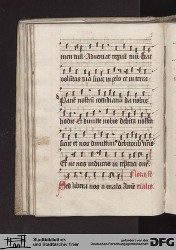 men tuū Adveniat regnū tuū fiat
volūtas tua sicut in celo et in terra
Panē nostrū cotidianū da nobis
hodie Et dimitte nobis debita nostra
sicut et nos dimittim⁹ debitorib⁹ nris
Et ne nos inducas in
Sed libera nos a malo. Amē
Stadtbibliothek
und Stadtarchiv Trier
gefördert von der
Deutschen Forschungsgemeinschaft
DFG